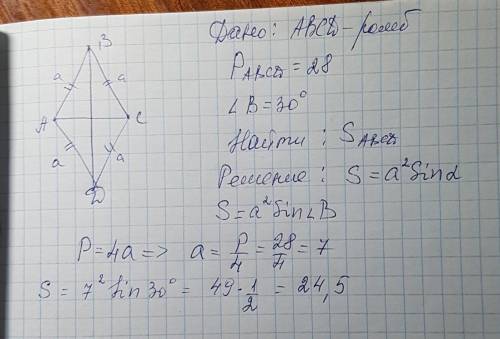 Дано: ABCD - ромб
P_ABCD = 28
∠B = 30°
Найти: S_ABCD
Решение: S = a² sin α
S = a² sin ∠B
B
a
a
A
C
a
a
D
P = 4a => a = P/4 = 28/4 = 7
S = 7² sin 30° = 49 · 1/2 = 24,5